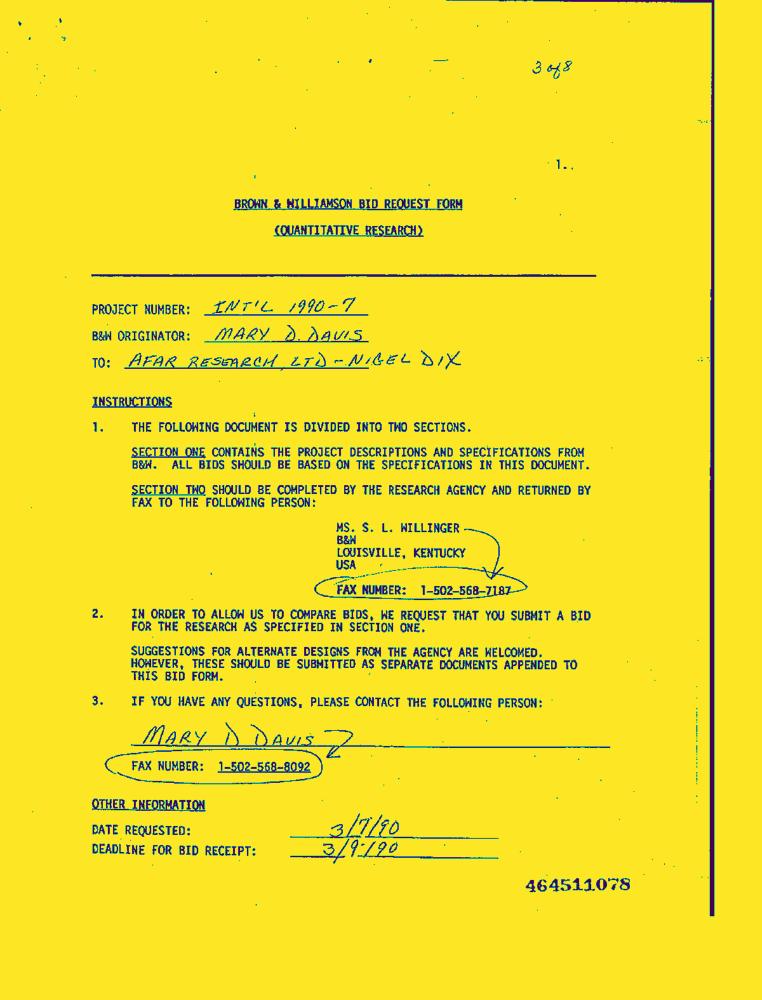 3 of 8
1.
BROWN & WILLIAMSON BID REQUEST FORM
(QUANTITATIVE RESEARCH)
PROJECT NUMBER: INT'L 1990-7
B&W ORIGINATOR: MARY D. DAVIS
TO: AFAR RESEARCH LTD - NIGEL DIX
INSTRUCTIONS
1. THE FOLLOWING DOCUMENT IS DIVIDED INTO TWO SECTIONS.
SECTION ONE CONTAINS THE PROJECT DESCRIPTIONS AND SPECIFICATIONS FROM
B&W. ALL BIDS SHOULD BE BASED ON THE SPECIFICATIONS IN THIS DOCUMENT.
SECTION TWO SHOULD BE COMPLETED BY THE RESEARCH AGENCY AND RETURNED BY
FAX TO THE FOLLOWING PERSON:
MS. S. L. WILLINGER
B&W
LOUISVILLE, KENTUCKY
USA
FAX NUMBER: 1-502-568-7187
2. IN ORDER TO ALLOW US TO COMPARE BIDS, WE REQUEST THAT YOU SUBMIT A BID
FOR THE RESEARCH AS SPECIFIED IN SECTION ONE.
SUGGESTIONS FOR ALTERNATE DESIGNS FROM THE AGENCY ARE WELCOMED.
HOWEVER, THESE SHOULD BE SUBMITTED AS SEPARATE DOCUMENTS APPENDED TO
THIS BID FORM.
3. IF YOU HAVE ANY QUESTIONS, PLEASE CONTACT THE FOLLOWING PERSON:
MARY D DAVIS
FAX NUMBER: 1-502-568-8092
OTHER INFORMATION
DATE REQUESTED: 3/7/90
DEADLINE FOR BID RECEIPT: 3/9/90
464511078